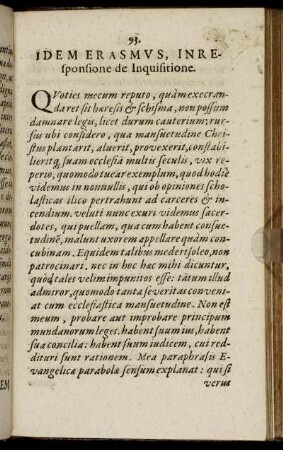 93.
IDEM ERASMVS, IN RE-
sponsione de Inquisitione.
QVoties mecum reputo, quàm execran-
da ret sit hæresis & schisma, non possum
damnare legis, licet durum cauterium: rur-
sus ubi considero, qua mansuetudine Chri-
stus plantarit, aluerit, provexerit, constabi-
lieritq́, suam ecclesiã multis seculis, vix re-
perio, quomodo tuear exemplum, quod hodiè
videmus in nonnullis, qui ob opiniones scho-
lasticas ilico pertrahunt ad carceres & in-
cendium. veluti nunc exuri videmus sacer-
dotes, qui puellam, qua cum habent consue-
tudinẽ, malunt uxorem appellare quàm con-
cubinam. Equidem talibus mederi soleo, non
patrocinari. nec in hoc hæc mihi dicuntur,
quòd tales velim impunitos esse: tãtum illud
admiror, quomodo tanta severitas conveni-
at cum ecclesiastica mansuetudine. Non est
meum, probare aut improbare principum
mundanorum leges. habent suum ius, habent
sua concilia: habent suum iudicem, cui red-
dituri sunt rationem. Mea paraphrasis E-
vangelicæ parabolæ sensum explanat: qui si
verus